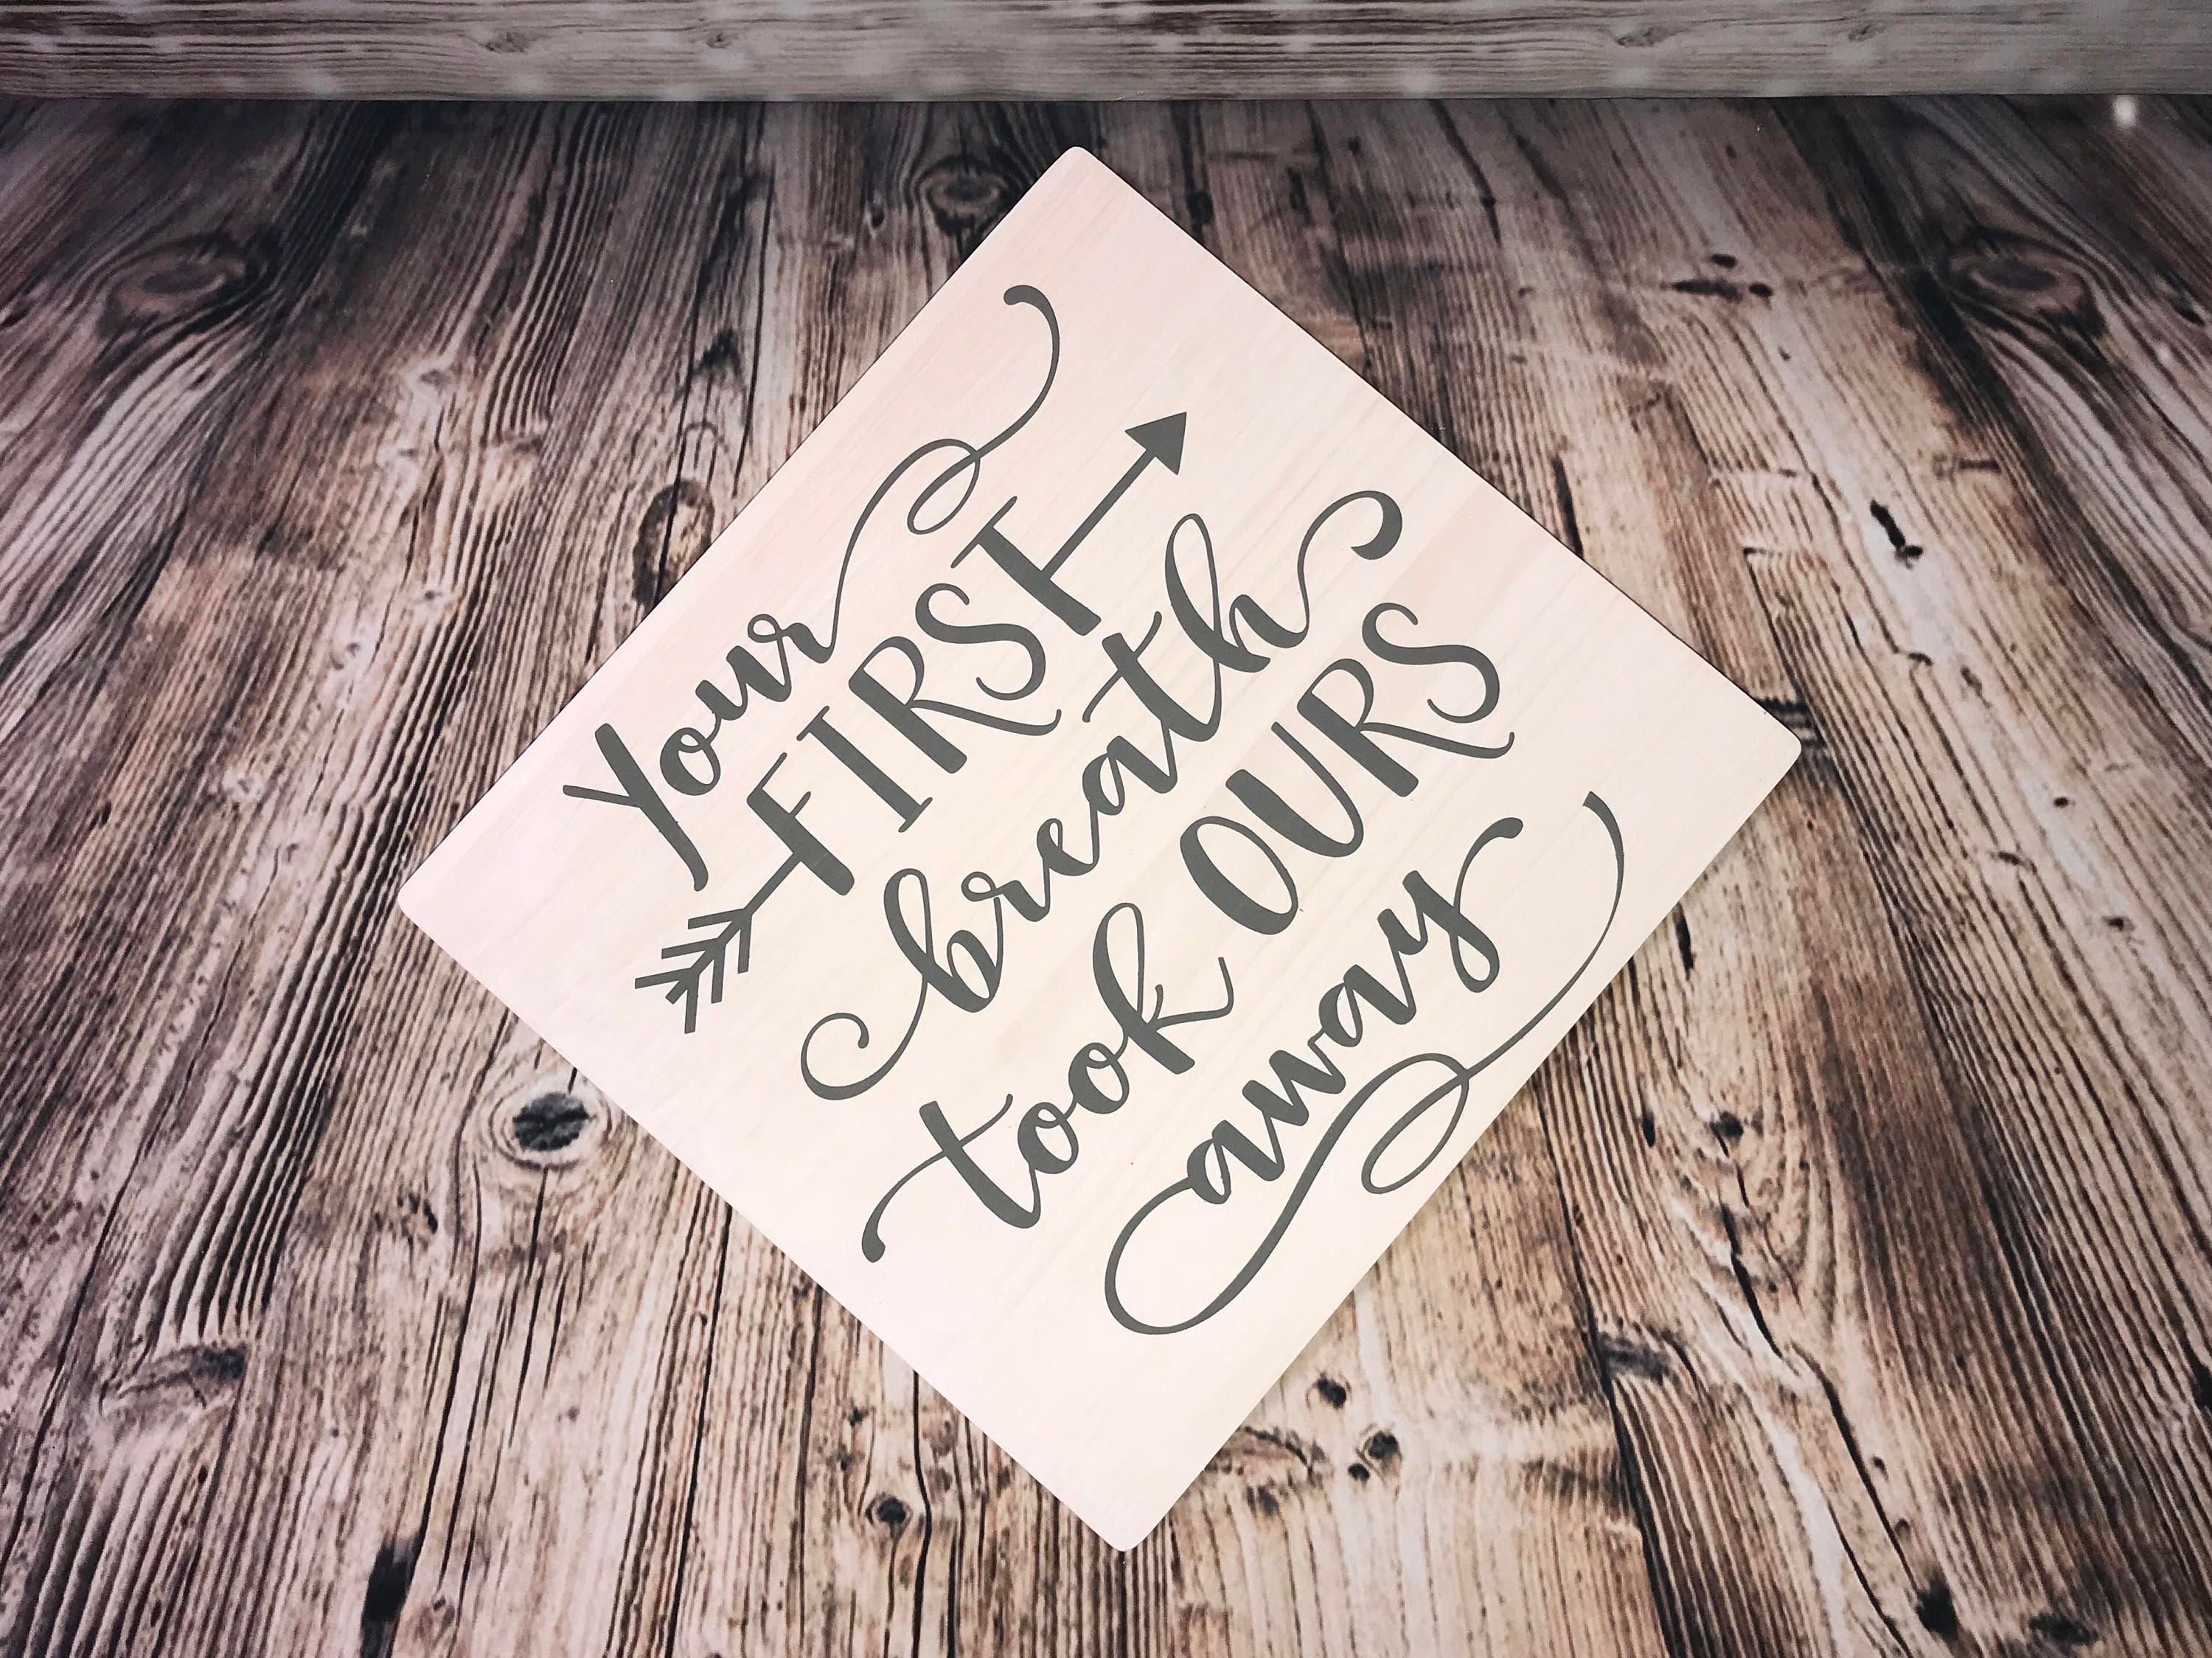 Your
FIRST
breath
took OURS
away